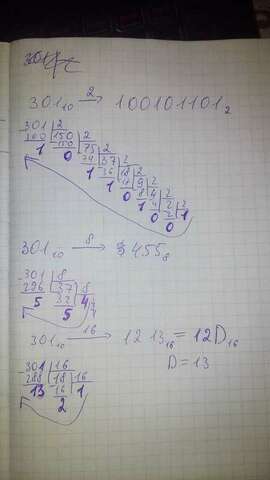 301
301₁₀ 2→ 100101101₂
301 | 2
300 | 150 | 2
1 150 | 75 | 2
0 74 | 37 | 2
1 36 | 18 | 2
1 | 9 | 2
0 8 | 4 | 2
1 4 | 2 | 2
0 2 | 1
0
301₁₀ 8→ 455₈
-301 | 8
296 | 37 | 8
5 32 | 4
5
301₁₀ 16→ 12 13₁₆ = 12D₁₆
D = 13
-301 | 16
288 | 18 | 16
13 16 | 1
2